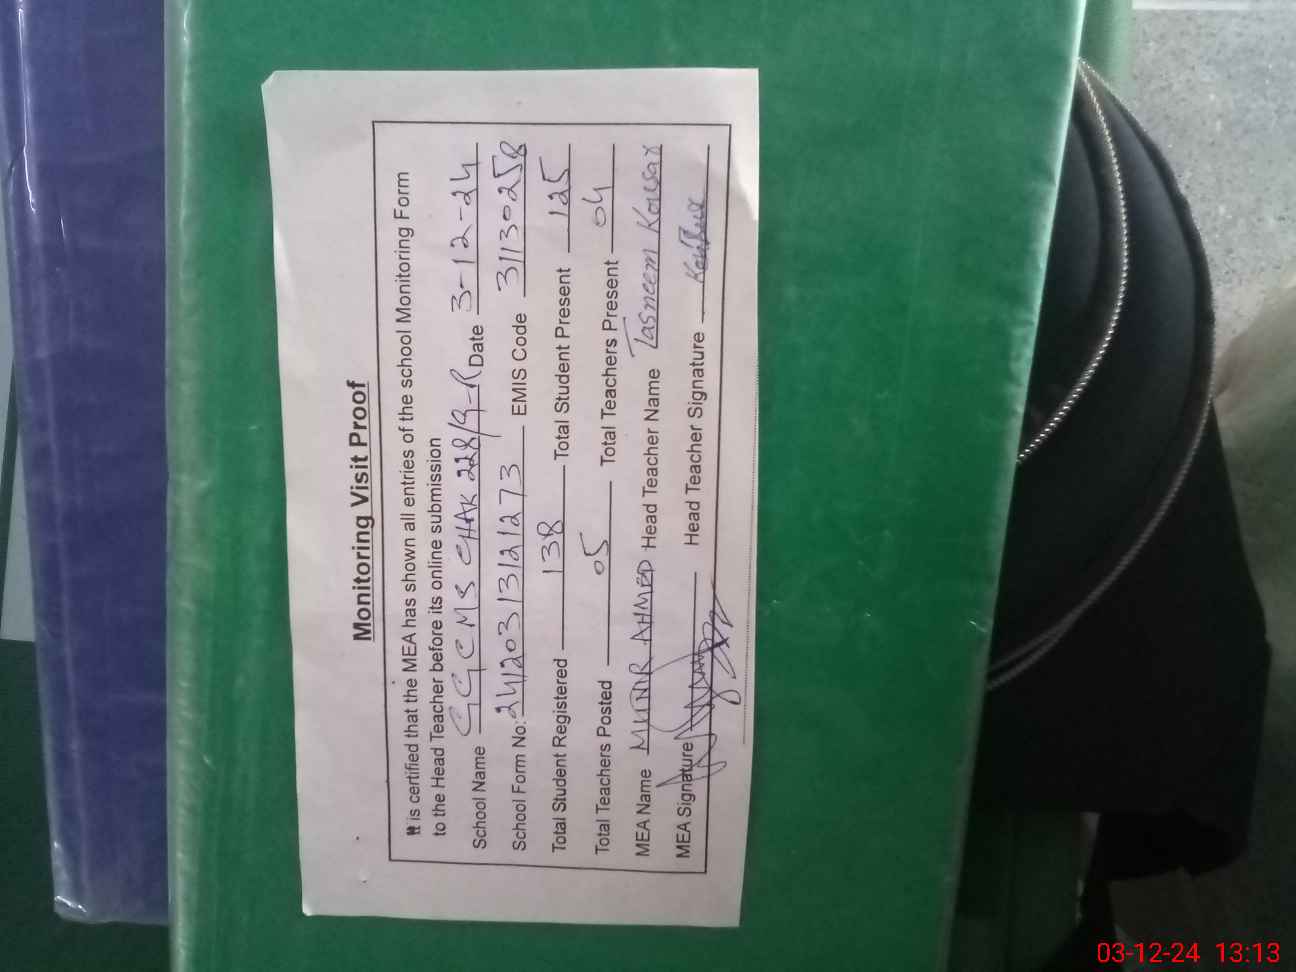 Monitoring Visit Proof
It is certified that the MEA has shown all entries of the school Monitoring Form
to the Head Teacher before its online submission
School Name GGCMS CHAK 228/9-R Date 3-12-24
School Form No: 24120313121273 EMIS Code 31130258
Total Student Registered 138 Total Student Present 125
Total Teachers Posted 05 Total Teachers Present 04
MEA Name MUNIR AHMED Head Teacher Name Tasneem Kousar
MEA Signature Head Teacher Signature
03-12-24 13:13